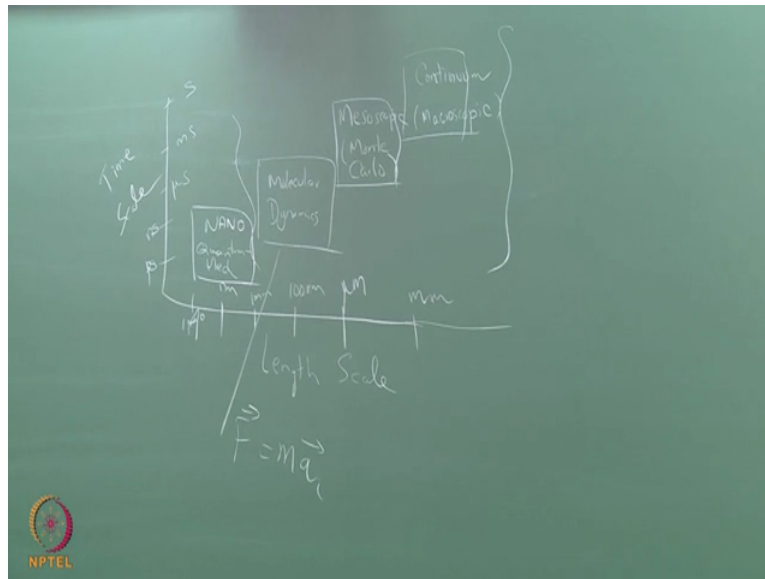 S
ms
μs
ns
ps
Time
Scale
NANO
Quantum
Med
Molecular
Dynamics
Mesoscopic
(Monte
Carlo)
Continuum
(Macroscopic)
1nm
100nm
μM
mm
Length Scale
F = m q i
NPTEL